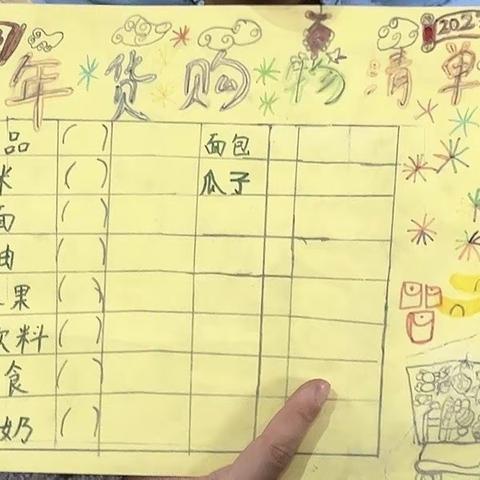 年货购物清单
202
品 ( ) 面包
米 ( ) 瓜子
面 ( )
油 ( )
果 ( )
饮料 ( )
食 ( )
奶 ( )